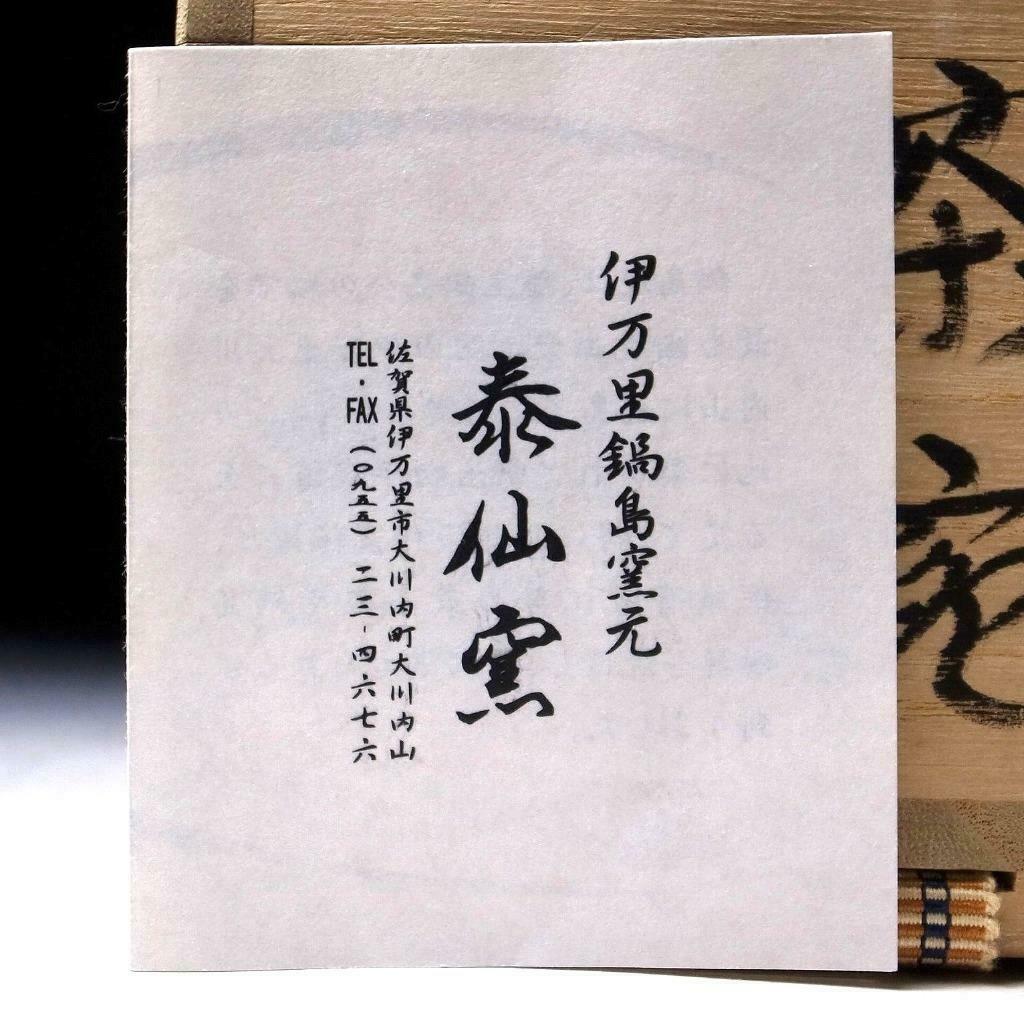 伊万里鍋島窯元
泰仙窯
佐賀県伊万里市大川内町大川内山
TEL・FAX（〇九五五）二三-四六七六